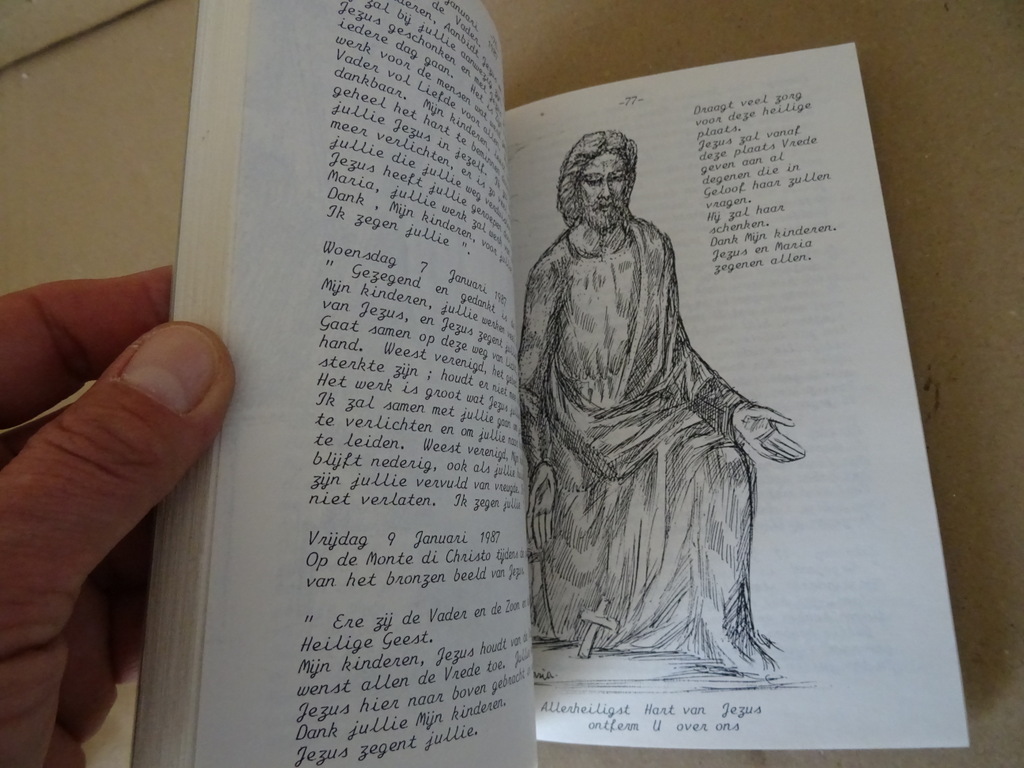 Januari
de Vader,
kinderen. Aanbidt
zal bij jullie aanwezig
Jezus geschonken en
iedere dag gaan. Het
werk voor de mensen
Vader vol Liefde voor
dankbaar. Mijn kinderen
geheel het hart te
jullie Jezus in jezelf,
meer verlichten, er is
jullie die jullie weg
Jezus heeft jullie geroepen
Maria, jullie werk zal
Dank, Mijn kinderen, voor
Ik zegen jullie ".
Woensdag 7 Januari 1987
" Gezegend en gedankt is
Mijn kinderen, jullie werken
van Jezus, en Jezus zegent
Gaat samen op deze weg van
hand. Weest verenigd, het
sterkte zijn ; houdt er niet
Het werk is groot wat Jezus
Ik zal samen met jullie gaan
te verlichten en om jullie naar
te leiden. Weest verenigd,
blijft nederig, ook als jullie
zijn jullie vervuld van vreugde.
niet verlaten. Ik zegen jullie
Vrijdag 9 Januari 1987
Op de Monte di Christo tijdens
van het bronzen beeld van Jezus.
" Ere zij de Vader en de Zoon
Heilige Geest.
Mijn kinderen, Jezus houdt van
wenst allen de Vrede toe.
Jezus hier naar boven gebracht
Dank jullie Mijn kinderen.
Jezus zegent jullie.
-77-
Draagt veel zorg
voor deze heilige
plaats.
Jezus zal vanaf
deze plaats Vrede
geven aan al
degenen die in
Geloof haar zullen
vragen.
Hij zal haar
schenken.
Dank Mijn kinderen.
Jezus en Maria
zegenen allen.
Allerheiligst Hart van Jezus
ontferm U over ons